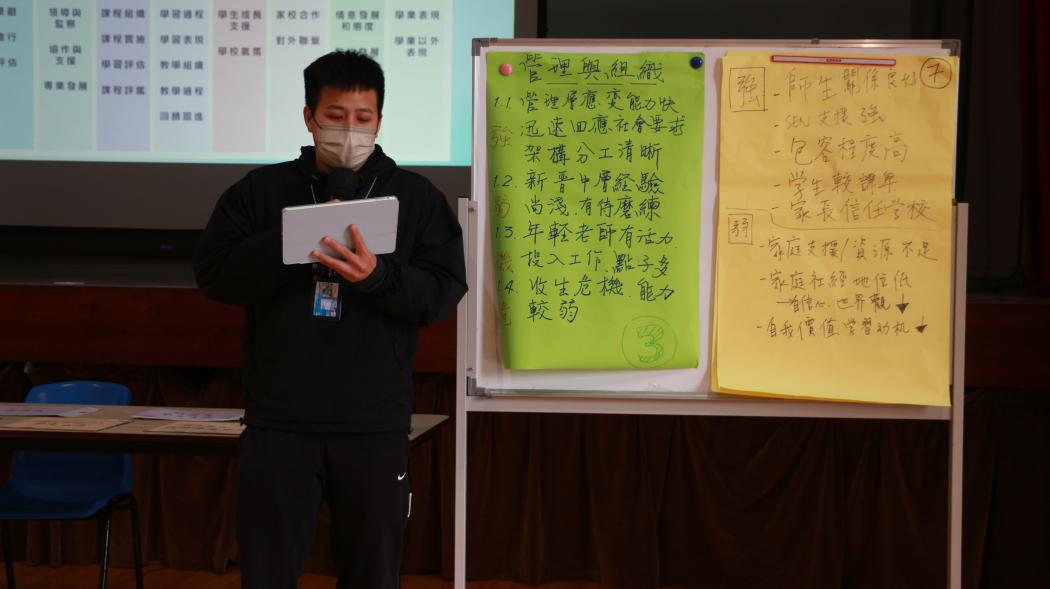 領導與
監察
協作與
支援
專業發展
課程組織
課程實施
學習評估
課程評鑑
學習過程
學習表現
教學組織
教學過程
回饋跟進
學生成長
支援
學校氣氛
家校合作
對外聯繫
情意發展
和態度
學業表現
學業以外
表現
管理與組織
1.1 管理層應變能力快
強 迅速回應社會要求
架構分工清晰
1.2. 新晉中層經驗
弱 尚淺.有待磨練
1.3. 年輕老師有活力.
投入工作.點子多
1.4. 收生危機.能力
較弱
3
7
強 - 師生關係良好
- SEN 支援強
- 包容程度高
- 学生較諌卑
- 家長信任学校
弱 - 家庭支援/資源不足
- 家庭社經地位低
- 自信心.世界觀↓
- 自我價值.学習动机↓